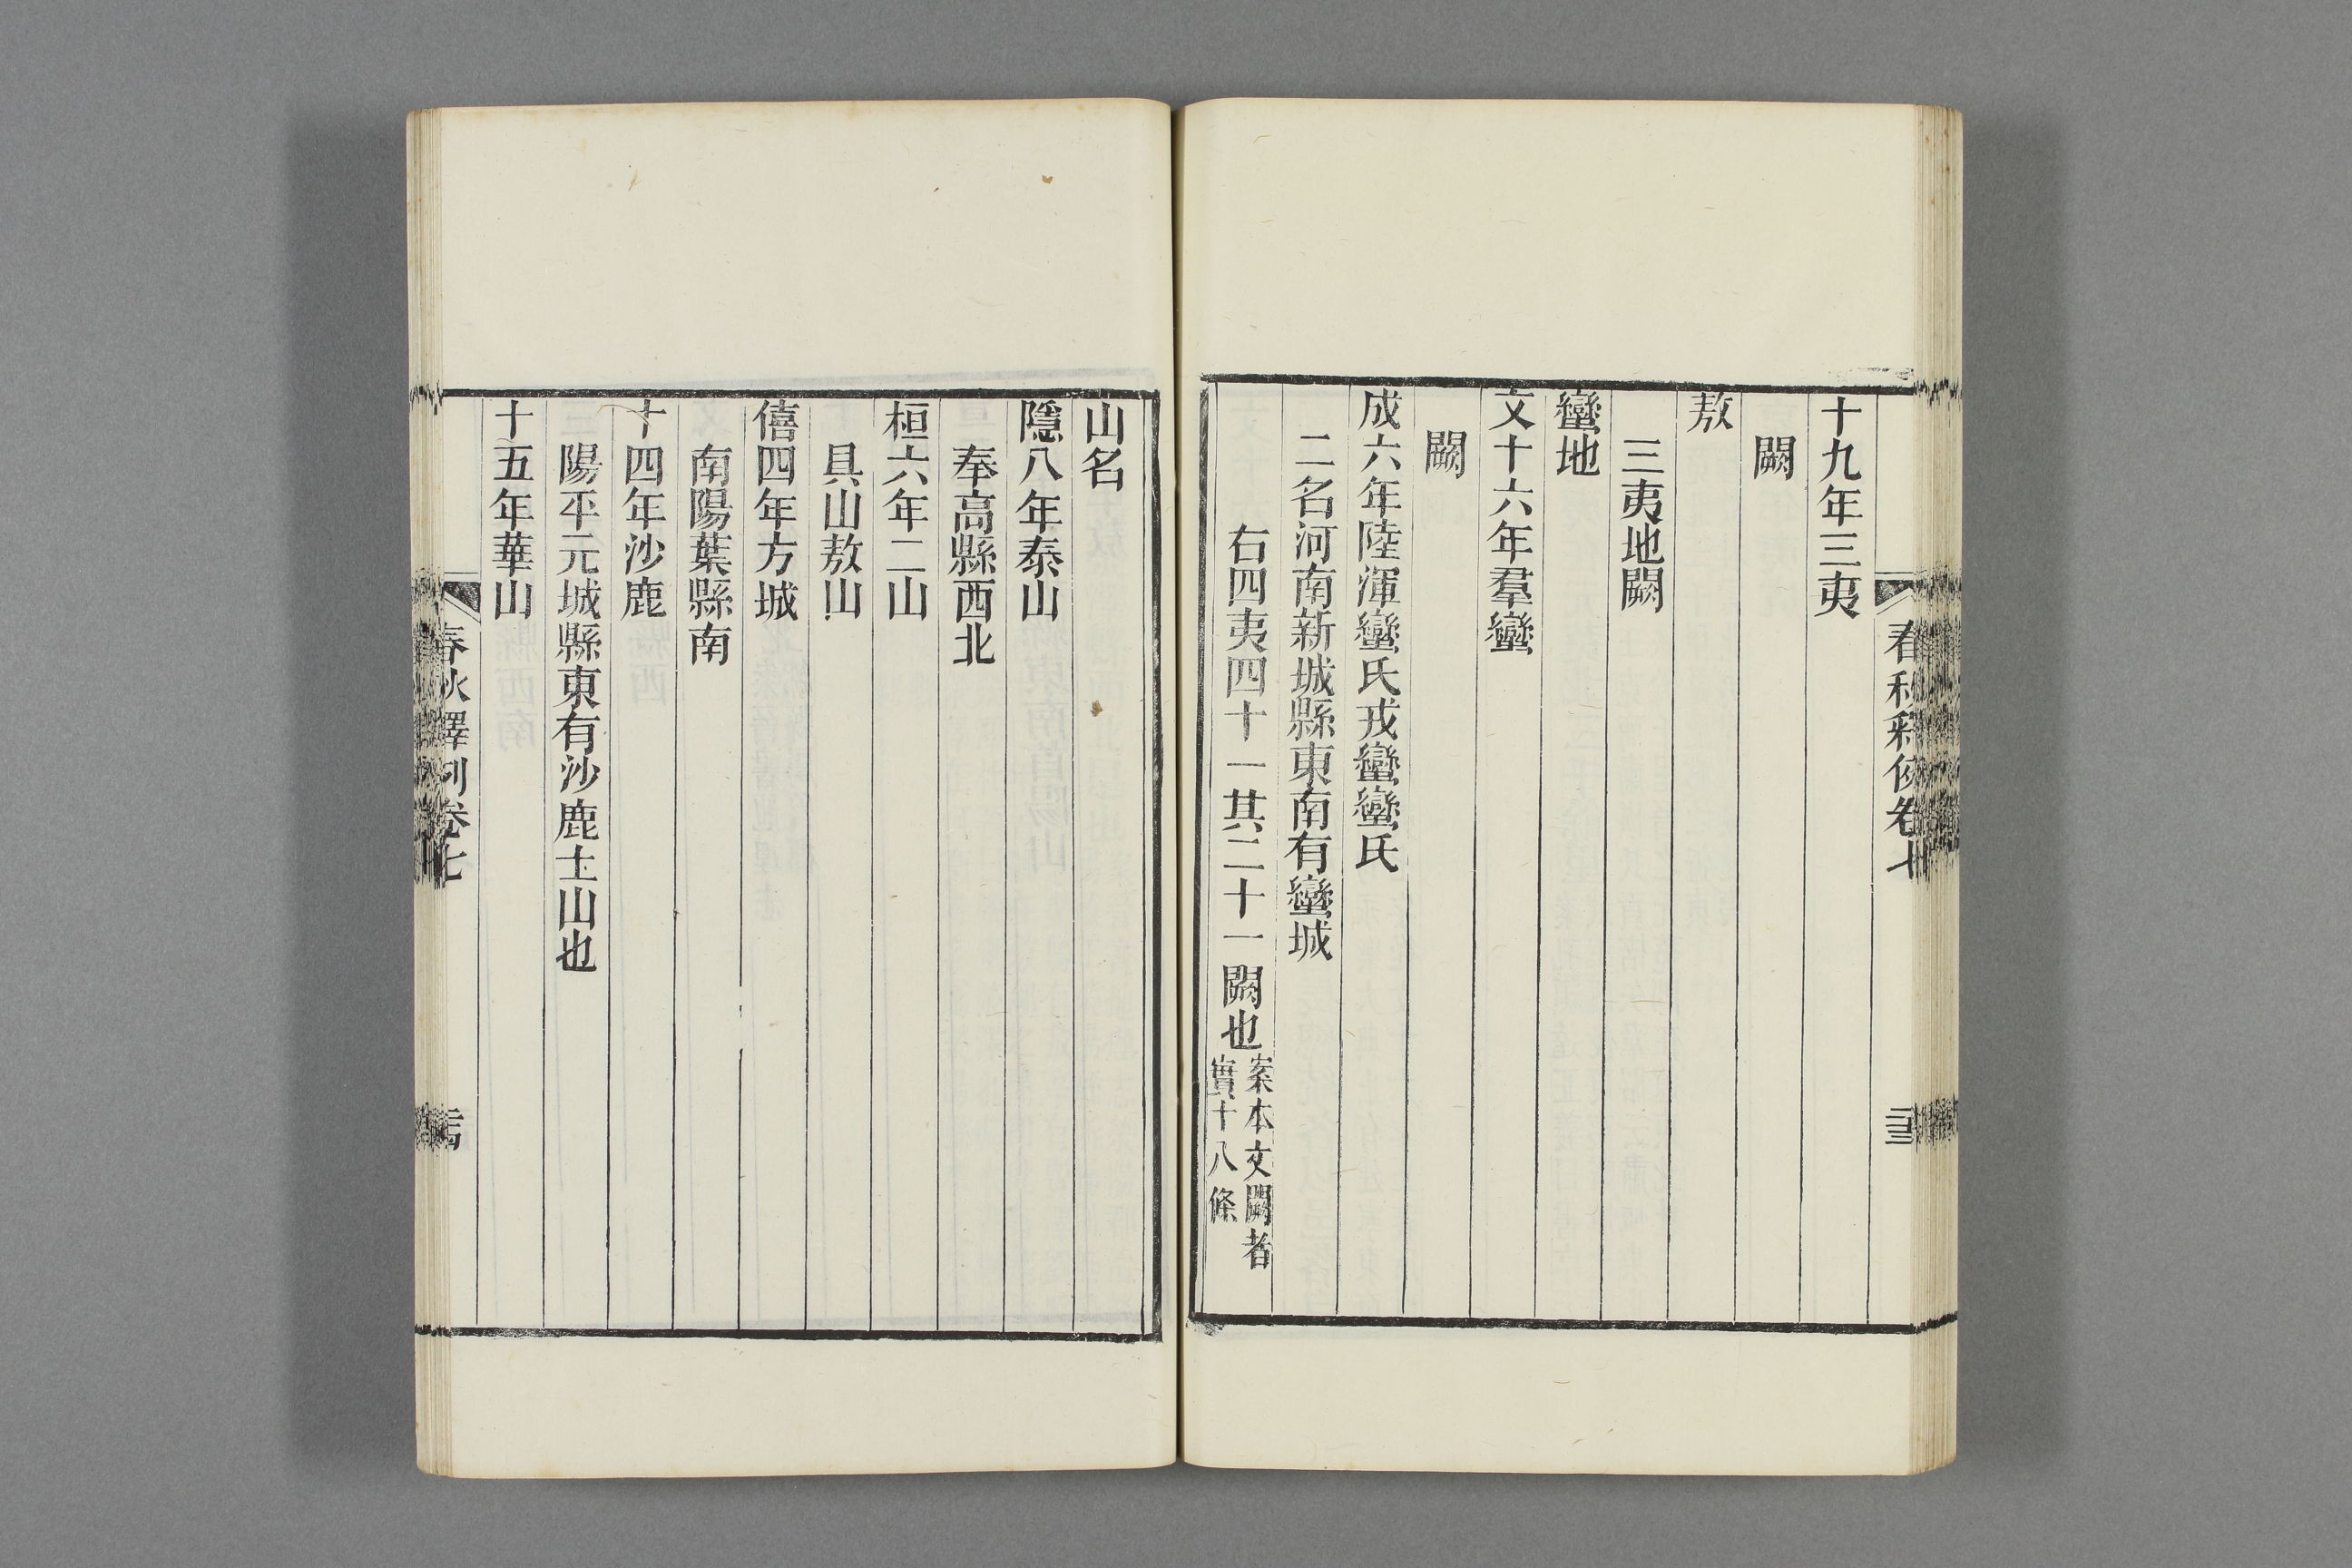 十九年三夷
闕
敖
三夷地闕
蠻地
文十六年羣蠻
闕
成六年陸渾蠻氏戎蠻蠻氏
二名河南新城縣東南有蠻城
右四夷四十一其二十一闕也案本文闕者
實十八條
山名
隱八年泰山
奉高縣西北
桓六年二山
具山敖山
僖四年方城
南陽葉縣南
十四年沙鹿
陽平元城縣東有沙鹿土山也
十五年華山
春秋釋例卷七